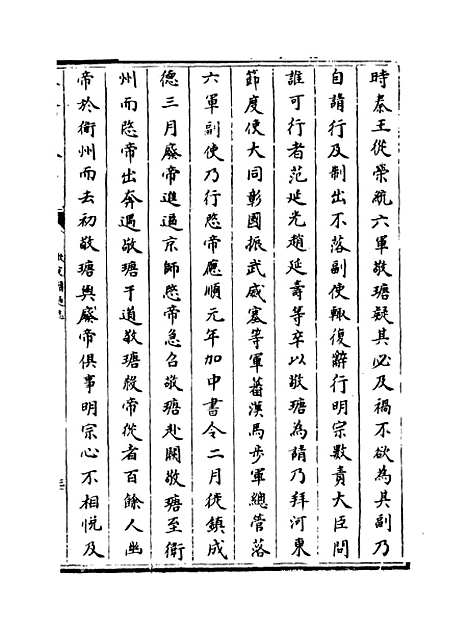 時秦王從榮統六軍敬瑭疑其必及禍不欲為其副乃
自請行及制出不落副使輒復辭行明宗數責大臣問
誰可行者范延光趙延壽等卒以敬瑭為請乃拜河東
節度使大同彰國振武威塞等軍蕃漢馬步軍總管落
六軍副使乃行愍帝應順元年加中書令二月徙鎮成
德三月廢帝進逼京師愍帝急召敬瑭赴闕敬瑭至衛
州而愍帝出奔遇敬瑭于道敬瑭殺帝從者百餘人幽
帝於衛州而去初敬瑭與廢帝俱事明宗心不相悅及